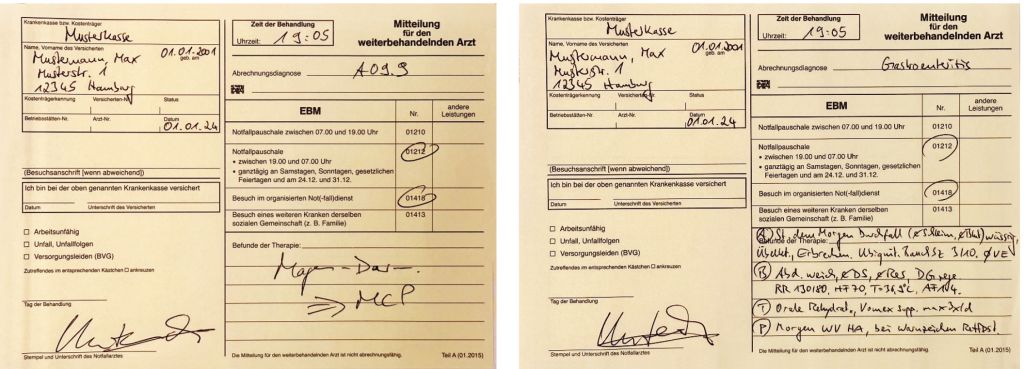 Krankenkasse bzw. Kostenträger
Musterkasse
Name, Vorname des Versicherten
Mustermann, Max
01.01.2001
geb. am
Musterstr. 1
12345 Hamburg
Kostenträgerkennung Versicherten-Nr. Status
Betriebsstätten-Nr. Arzt-Nr. Datum
01.01.24
(Besuchsanschrift [wenn abweichend])
Ich bin bei der oben genannten Krankenkasse versichert
Datum Unterschrift des Versicherten
Arbeitsunfähig
Unfall, Unfallfolgen
Versorgungsleiden (BVG)
Zutreffendes im entsprechenden Kästchen ☐ ankreuzen
Tag der Behandlung
Stempel und Unterschrift des Notfallarztes
Zeit der Behandlung
Uhrzeit: 19:05
Mitteilung
für den
weiterbehandelnden Arzt
Abrechnungsdiagnose A09.9
EBM Nr. andere Leistungen
Notfallpauschale zwischen 07.00 und 19.00 Uhr 01210
Notfallpauschale 01212
• zwischen 19.00 und 07.00 Uhr
• ganztägig an Samstagen, Sonntagen, gesetzlichen
Feiertagen und am 24.12. und 31.12.
Besuch im organisierten Not(-fall)dienst 01418
Besuch eines weiteren Kranken derselben 01413
sozialen Gemeinschaft (z. B. Familie)
Befunde der Therapie:
Magen-Dar-.
⇒ MCP
Die Mitteilung für den weiterbehandelnden Arzt ist nicht abrechnungsfähig. Teil A (01.2015)
Krankenkasse bzw. Kostenträger
Musterkasse
Name, Vorname des Versicherten
Mustermann, Max
01.01.2001
geb. am
Musterstr. 1
12345 Hamburg
Kostenträgerkennung Versicherten-Nr. Status
Betriebsstätten-Nr. Arzt-Nr. Datum
01.01.24
(Besuchsanschrift [wenn abweichend])
Ich bin bei der oben genannten Krankenkasse versichert
Datum Unterschrift des Versicherten
Arbeitsunfähig
Unfall, Unfallfolgen
Versorgungsleiden (BVG)
Zutreffendes im entsprechenden Kästchen ☐ ankreuzen
Tag der Behandlung
Stempel und Unterschrift des Notfallarztes
Zeit der Behandlung
Uhrzeit: 19:05
Mitteilung
für den
weiterbehandelnden Arzt
Abrechnungsdiagnose Gastroenteritis
EBM Nr. andere Leistungen
Notfallpauschale zwischen 07.00 und 19.00 Uhr 01210
Notfallpauschale 01212
• zwischen 19.00 und 07.00 Uhr
• ganztägig an Samstagen, Sonntagen, gesetzlichen
Feiertagen und am 24.12. und 31.12.
Besuch im organisierten Not(-fall)dienst 01418
Besuch eines weiteren Kranken derselben 01413
sozialen Gemeinschaft (z. B. Familie)
Befunde der Therapie:
(A) St. dem Morgen Durchfall (∅Schleim, ∅Blut) wässrig,
Übelkeit, Erbrechen. Ubiquit. Bauchsz 3/10. ∅VE
(B) Abd. weich, ∅DS, ∅Res, DG rege.
RR 130/80, HF 70, T=36,9°C, AF 14.
(T) Orale Rehydrat., Vomex supp. max 3xtd
(P) Morgen WV HA, bei Warnzeichen Rettdst.
Die Mitteilung für den weiterbehandelnden Arzt ist nicht abrechnungsfähig. Teil A (01.2015)